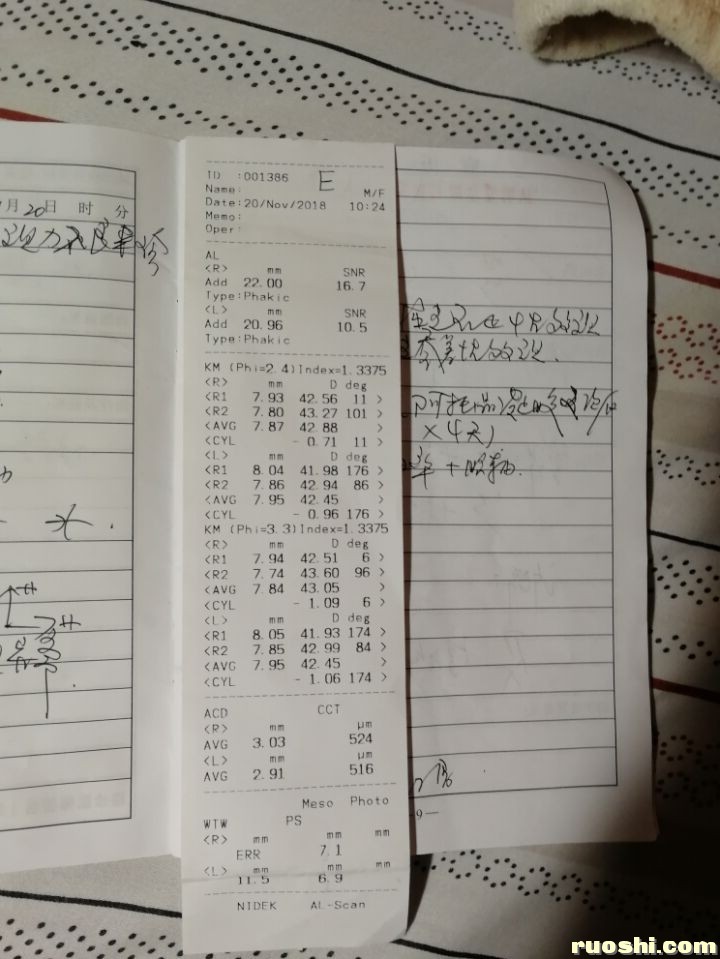 月20日 时 分
ID :001386 E
Name: M/F
Date:20/Nov/2018 10:24
Memo:
Oper:
AL
<R> mm SNR
Add 22.00 16.7
Type:Phakic
<L> mm SNR
Add 20.96 10.5
Type:Phakic
KM (Phi=2.4)Index=1.3375
<R> mm D deg
<R1 7.93 42.56 11 >
<R2 7.80 43.27 101 >
<AVG 7.87 42.88 >
<CYL - 0.71 11 >
<L> mm D deg
<R1 8.04 41.98 176 >
<R2 7.86 42.94 86 >
<AVG 7.95 42.45 >
<CYL - 0.96 176 >
KM (Phi=3.3)Index=1.3375
<R> mm D deg
<R1 7.94 42.51 6 >
<R2 7.74 43.60 96 >
<AVG 7.84 43.05 >
<CYL - 1.09 6 >
<L> mm D deg
<R1 8.05 41.93 174 >
<R2 7.85 42.99 84 >
<AVG 7.95 42.45 >
<CYL - 1.06 174 >
ACD CCT
<R> mm μm
AVG 3.03 524
<L> mm μm
AVG 2.91 516
Meso Photo
WTW PS
<R> mm mm mm
ERR 7.1
<L> mm mm mm
11.5 6.9
NIDEK AL-Scan
×4天)
9—
ruoshi.com